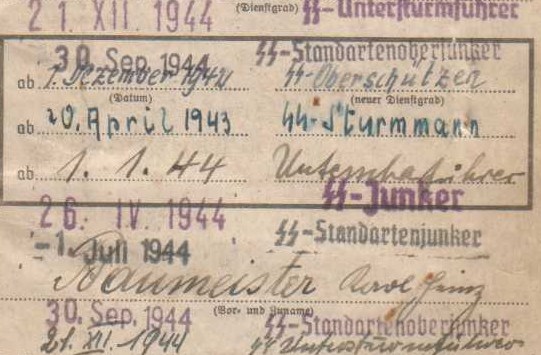 21. XII. 1944 (Dienstgrad) SS-Untersturmführer
30. Sep. 1944 SS-Standartenoberjunker
ab 1. Dezember 1942 SS-Oberschützen
(Datum) (neuer Dienstgrad)
ab 20. April 1943 SS-Sturmmann
ab 1. 1. 44 Unterscharführer
26. IV. 1944 SS-Junker
-1. Juli 1944 SS-Standartenjunker
Baumeister Karl Heinz
(Vor- und Zuname)
30. Sep. 1944 SS-Standartenoberjunker
21. XII. 1944 SS Untersturmführer